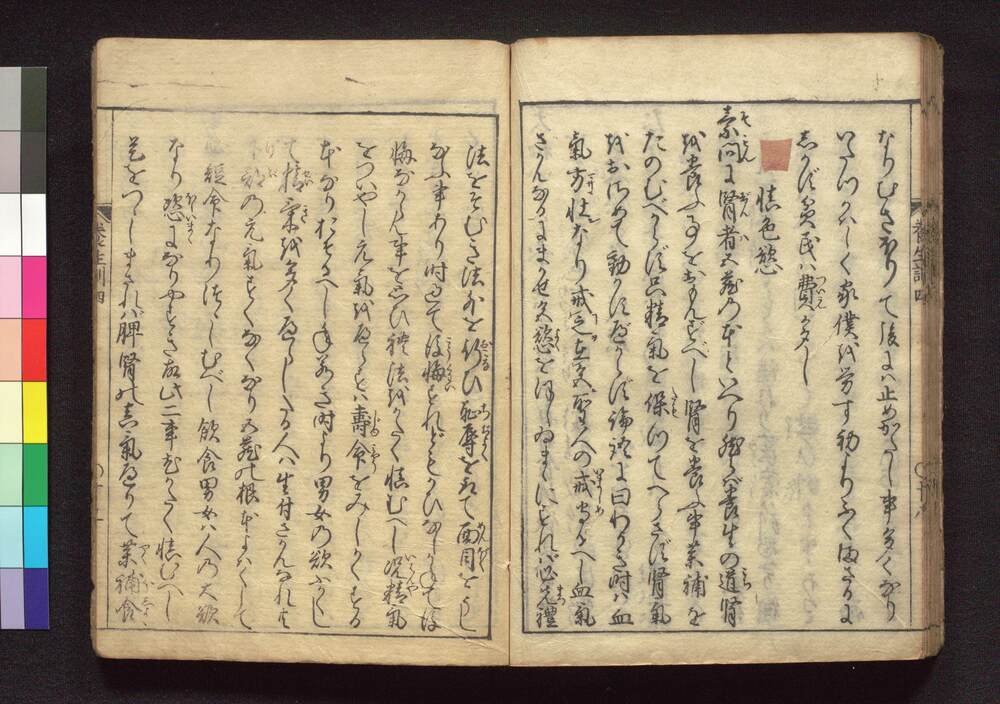 なりむさほりて後には止めがたし事多くなり
いたつかはしく家僕を労す初よりふくまざるに
しかず貧民は費多し
慎色慾
素問に腎者五蔵の本といへり然らば養生の道腎
を養ふ事をおもんずべし腎を養ふ事薬補を
たのむべからず只精気を保つてへらさず腎気
をおさめて動かすべからず論語に曰わかき時は血
氣方壮なり戒之在色聖人の戒守るへし血氣
さかんなるにまかせ色慾をほしゐまゝにすれば必先禮
法をそむき法外を行ひ恥辱を取て面目をうし
なふ事あり時過て後悔すれどもかひなしかねて後
悔なからん事を思ひ禮法をかたく慎むべし况精氣
をついやし元氣をへらすは壽命をみじかくする
本なりおそるべし年若き時より男女の欲ふかくし
て精氣を多くへらしたる人は生付さかんなれ共
下部の元氣すくなくなり五蔵の根本よはくして
必短命なりつゝしむべし飲食男女は人の大欲
なり恣になりやすき故此二事尤かたく慎むべし
是をつゝしまされば脾腎の真氣へりて薬補食
養生訓四
養生訓四